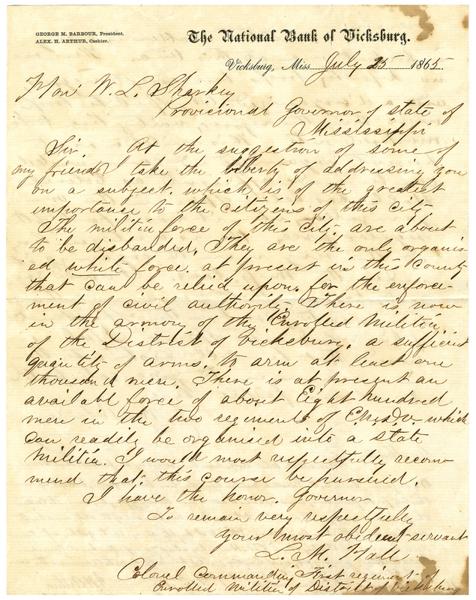 GEORGE M. BARBOUR, President.
ALEX. H. ARTHUR, Cashier.
The National Bank of Vicksburg.
Vicksburg, Miss July 25 1865
Hon W. L. Sharkey
Provisional Governor of state of
Mississippi
Sir. At the suggestion of some of
my friends take the liberty of addressing you
on a subject. which is of the greatest
importance to the citizens of this city
The militia force of this city. are about
to be disbanded. They are the only organis
ed white force. at present in this County
that can be relied upon. for the enforce-
ment of civil authority. There is now
in the armory of the Enrolled Militia.
of the District of Vicksburg. a sufficient
quantity of arms. to arm at least one
thousand men. There is at present an
available force of about Eight hundred
men in the two regements of which
can readily be organised into a state
Militia. I would most respectfully recom
mend that. this course be pursued.
I have the honor. Governor
To remain very respectfully
Your most obedient servant
L. M. Hall
Colonel Commanding First regiment of
Enrolled Militia of District of Vicksburg